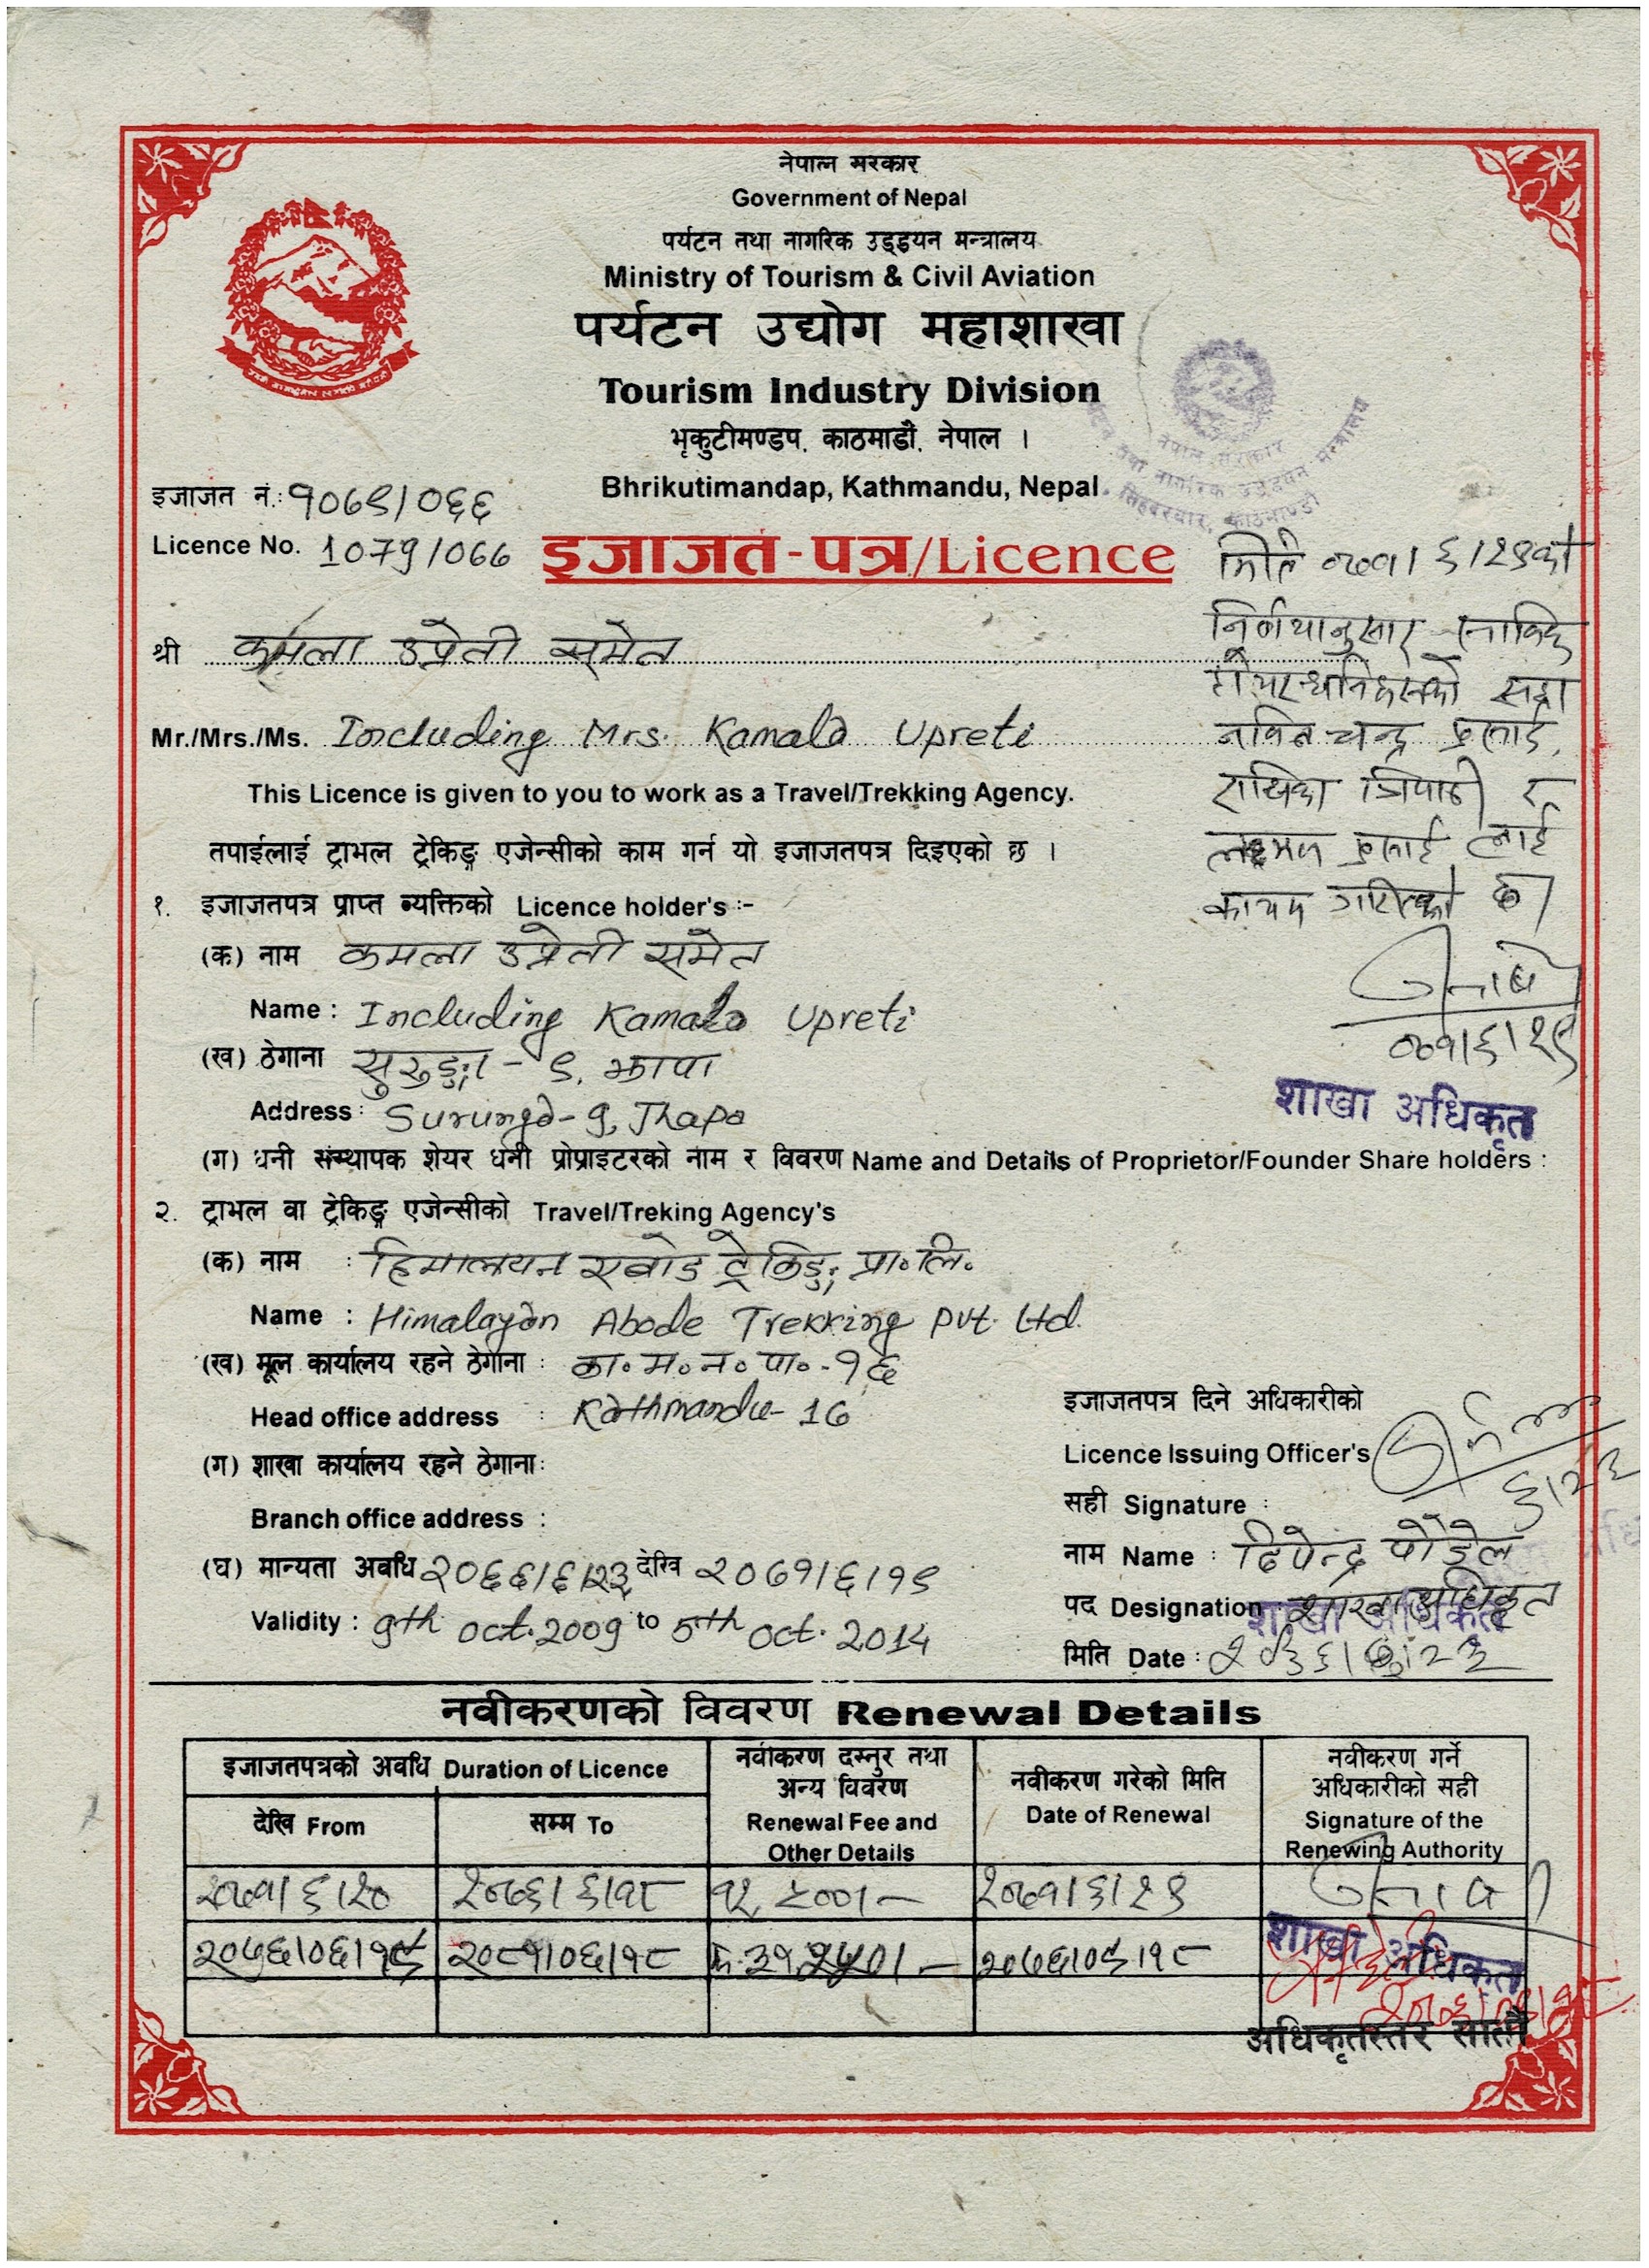 नेपाल सरकार
Government of Nepal
पर्यटन तथा नागरिक उड्डयन मन्त्रालय
Ministry of Tourism & Civil Aviation
पर्यटन उद्योग महाशाखा
Tourism Industry Division
भृकुटीमण्डप, काठमाडौं, नेपाल ।
Bhrikutimandap, Kathmandu, Nepal
नेपाल सरकार
नागरिक उड्डयन मन्त्रालय
सिंहदरबार, काठमाण्डौ
इजाजत नं.: १०७९/०६६
Licence No. 1079/066
इजाजत-पत्र/Licence
मिति ०७१/६/२९को
निर्णयानुसार साविक
सट्टा
चन्द्र
त्रिपाठी र
लक्ष्मण लाई
कायम गरिएको छ।
०७१/६/२९
शाखा अधिकृत
श्री कमला उप्रेती समेत
Mr./Mrs./Ms. Including Mrs. Kamala Upreti
This Licence is given to you to work as a Travel/Trekking Agency.
तपाईलाई ट्राभल ट्रेकिङ्ग एजेन्सीको काम गर्न यो इजाजतपत्र दिइएको छ ।
१. इजाजतपत्र प्राप्त व्यक्तिको Licence holder's :-
(क) नाम कमला उप्रेती समेत
Name : Including Kamala Upreti
(ख) ठेगाना सुरुङ्गा - ९, झापा
Address : Surunga-9, Jhapa
(ग) धनी संस्थापक शेयर धनी प्रोप्राइटरको नाम र विवरण Name and Details of Proprietor/Founder Share holders :
२. ट्राभल वा ट्रेकिङ्ग एजेन्सीको Travel/Treking Agency's
(क) नाम : हिमालयन एबोड ट्रेकिङ्ग प्रा.लि.
Name : Himalayan Abode Trekking Pvt. Ltd.
(ख) मूल कार्यालय रहने ठेगाना : का.म.न.पा.-१६
Head office address : Kathmandu-16
(ग) शाखा कार्यालय रहने ठेगाना:
Branch office address :
(घ) मान्यता अवधि २०६६/६/२३ देखि २०७१/६/१९
Validity : 9th Oct. 2009 to 5th Oct. 2014
इजाजतपत्र दिने अधिकारीको
Licence Issuing Officer's
सही Signature :
नाम Name : दिपेन्द्र पौडेल
पद Designation : शाखा अधिकृत
शाखा अधिकृत
मिति Date :
नवीकरणको विवरण Renewal Details
इजाजतपत्रको अवधि Duration of Licence
देखि From
सम्म To
नवीकरण दस्तुर तथा
अन्य विवरण
Renewal Fee and
Other Details
नवीकरण गरेको मिति
Date of Renewal
नवीकरण गर्ने
अधिकारीको सही
Signature of the
Renewing Authority
२०७१/६/२० २०७६/६/१८ १२,५००/- २०७१/६/२९
शाखा अधिकृत
२०७६/०६/१९ २०८१/०६/१८ २०७६/०९/१८
अधिकृतस्तर सातौं